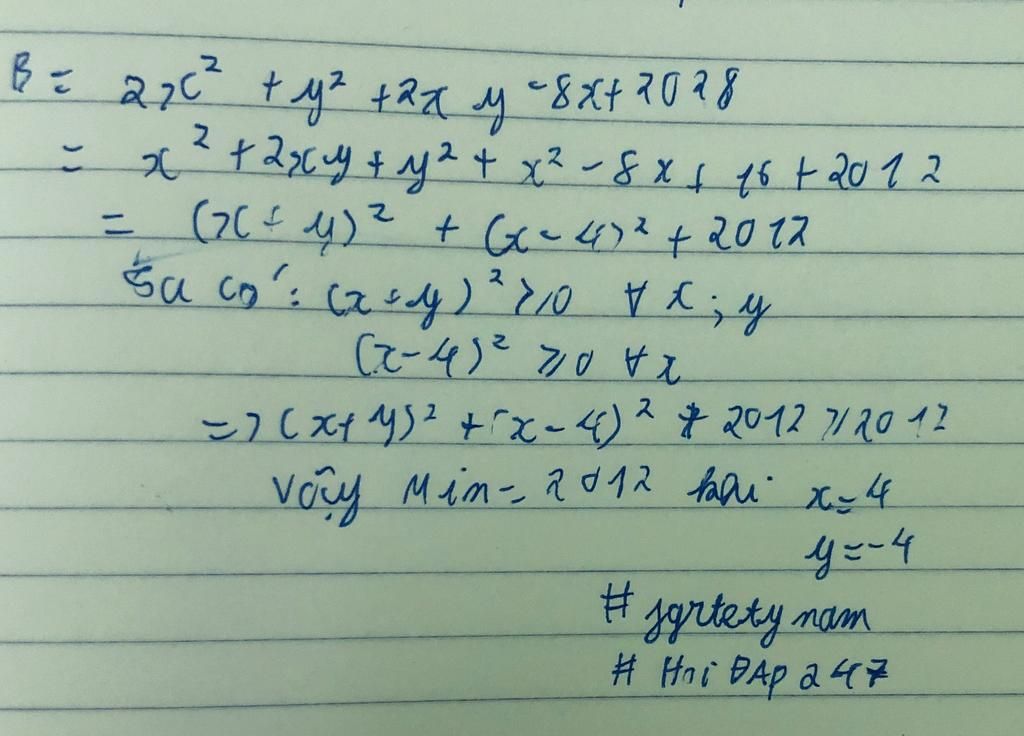 B = 2x² + y² + 2xy - 8x + 2028
= x² + 2xy + y² + x² - 8x + 16 + 2012
= (x + y)² + (x - 4)² + 2012
Ta có: (x + y)² ≥ 0 ∀ x; y
(x - 4)² ≥ 0 ∀ x
=> (x + y)² + (x - 4)² + 2012 ≥ 2012
Vậy Min = 2012 khi x = 4
y = -4
# nam
# Hỏi ĐAp 247